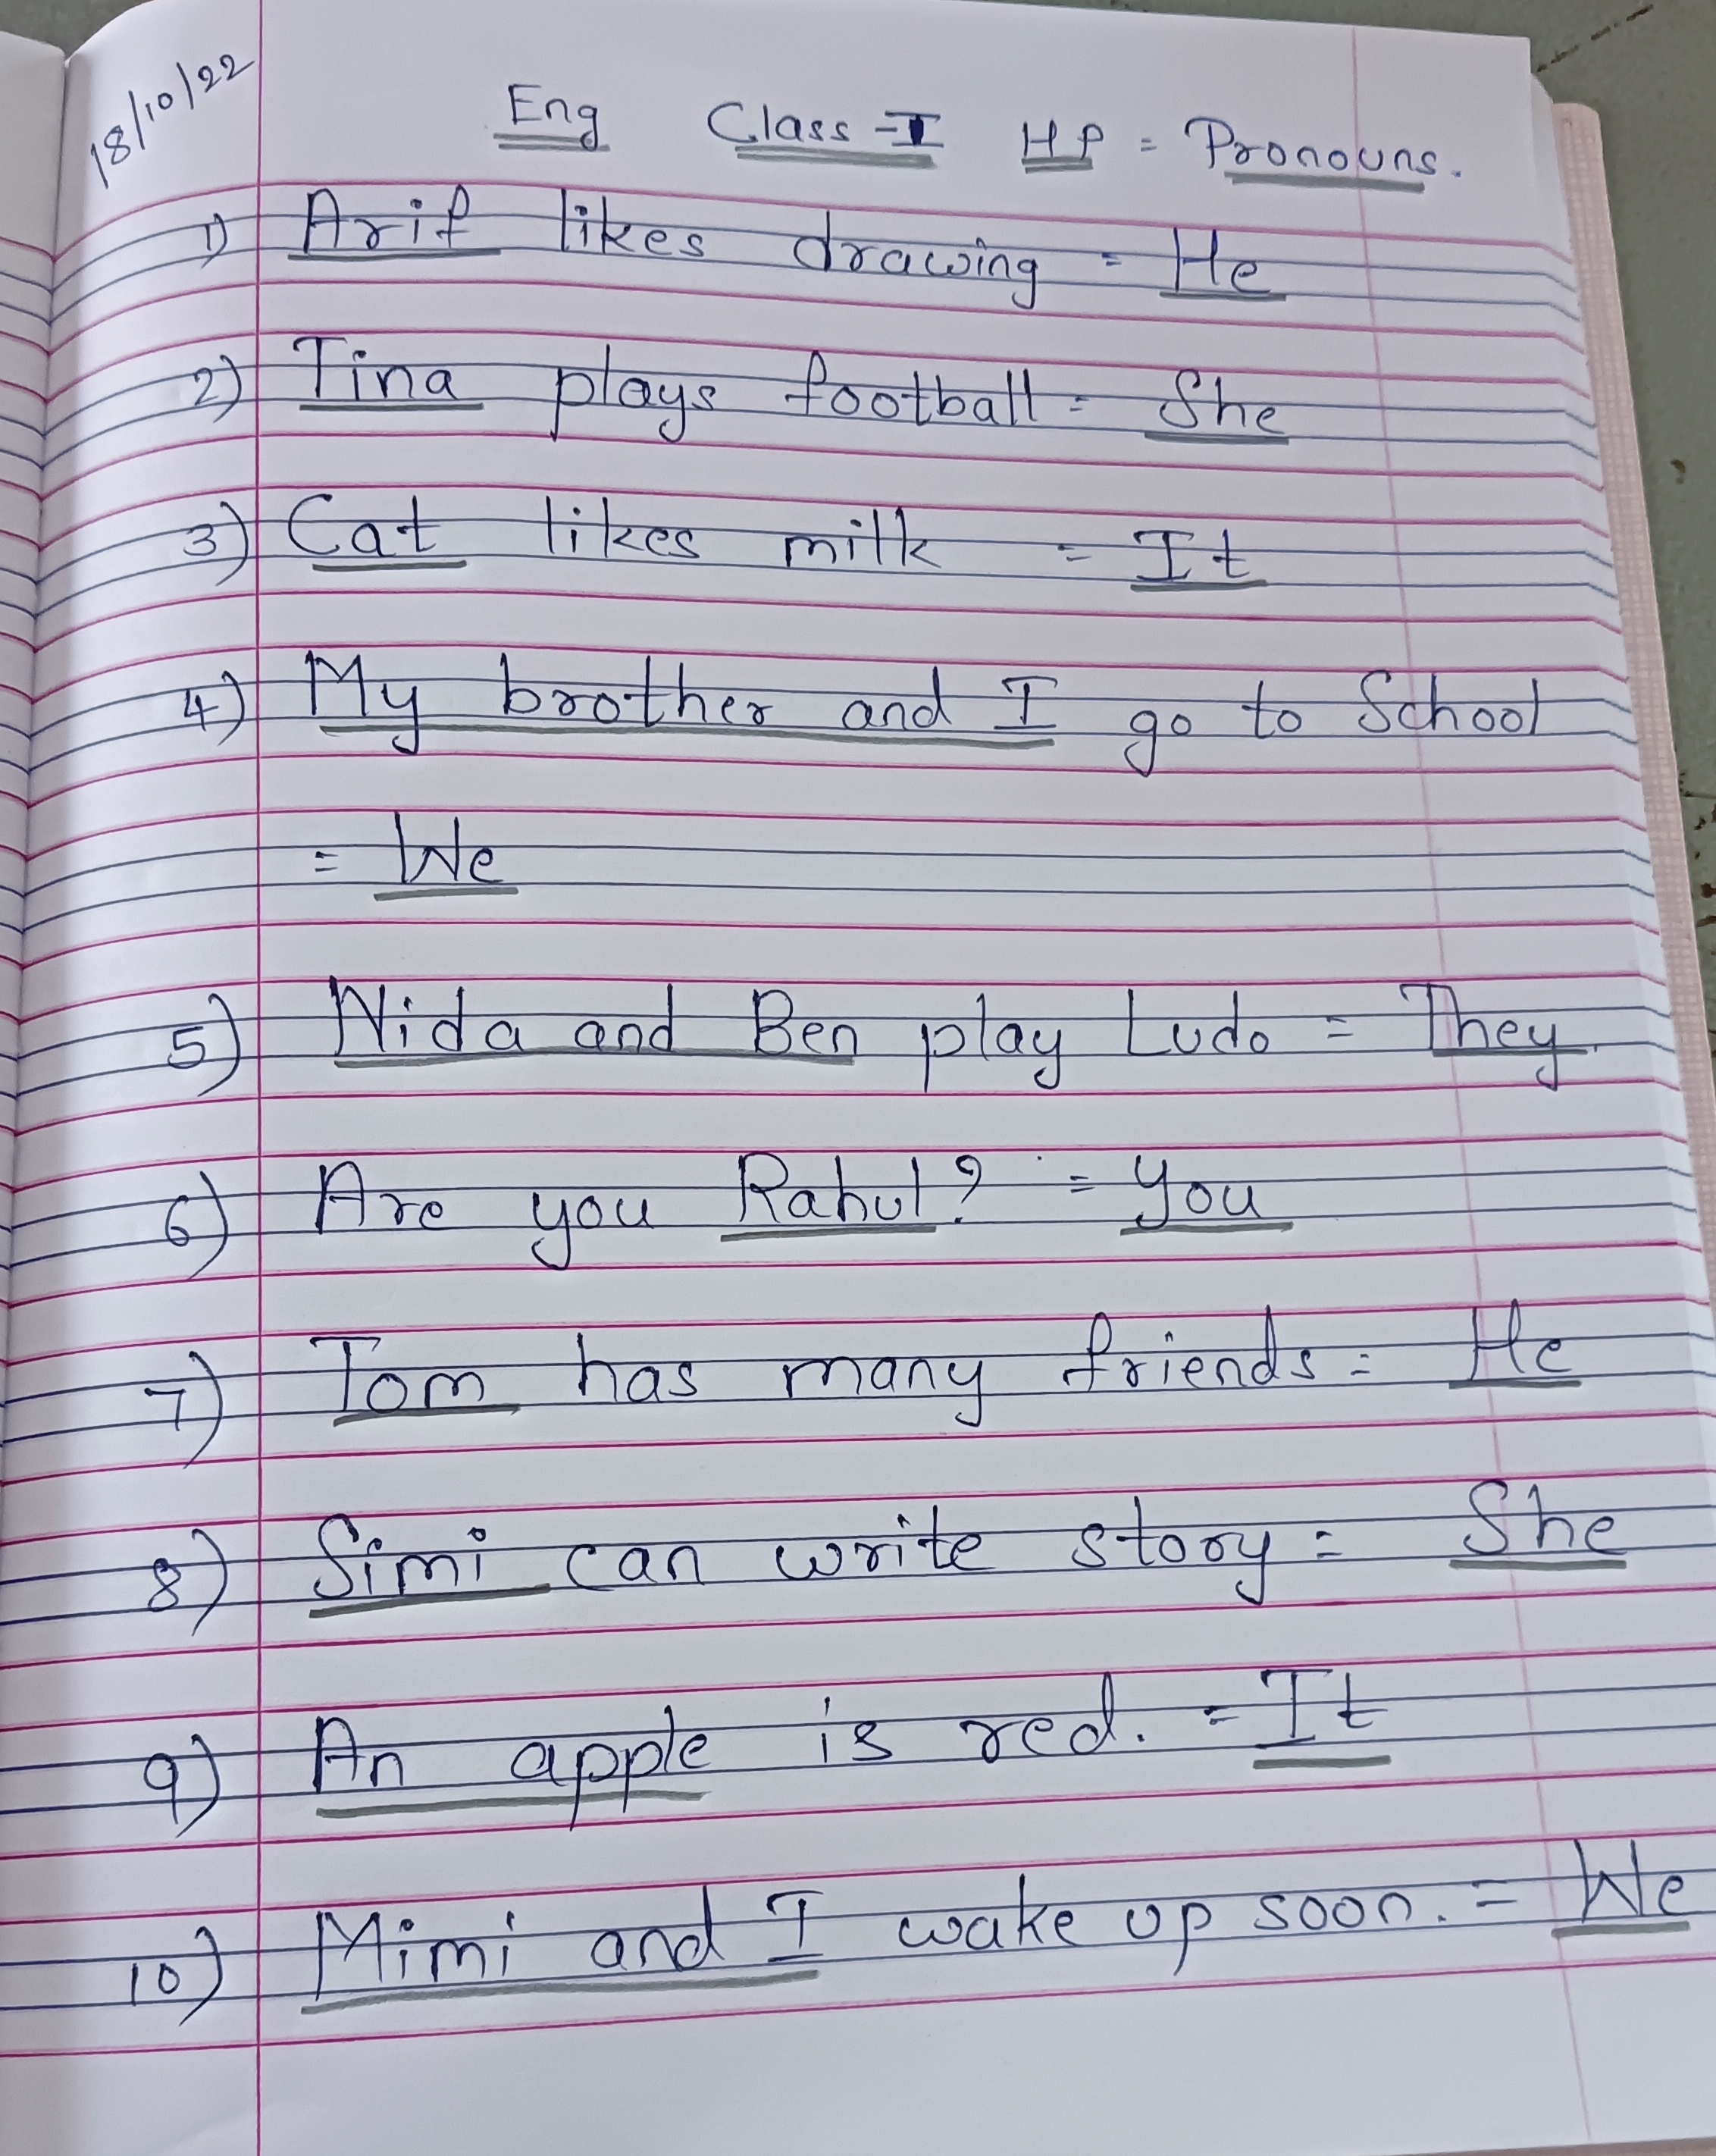 18/10/22
Eng Class-I HP = Pronouns.
1) Arif likes drawing = He
2) Tina plays football = She
3) Cat likes milk = It
4) My brother and I go to School
= We
5) Nida and Ben play Ludo = They.
6) Are you Rahul? = You
7) Tom has many friends = He
8) Simi can write story = She
9) An apple is red. = It
10) Mimi and I wake up soon. = We